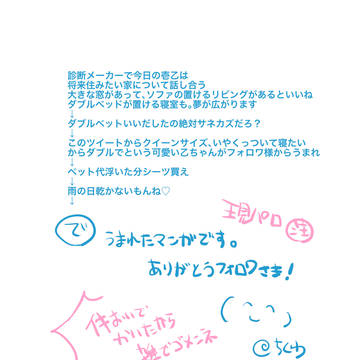 診断メーカーで今日の壱乙は
将来住みたい家について話し合う
大きな窓があって、ソファの置けるリビングがあるといいね
ダブルベッドが置ける寝室も。夢が広がります
↓
ダブルベットいいだしたの絶対サネカズだろ？
↓
このツイートからクイーンサイズ、いやくっついて寝たい
からダブルでという可愛い乙ちゃんがフォロワ様からうまれ
↓
ベット代浮いた分シーツ買え
↓
雨の日乾かないもんね♡
↓
現パロ
注
で うまれたマンガです。
ありがとうフォロワさま！
件おいで
かいたから
雑でゴメンネ
@ちくわ